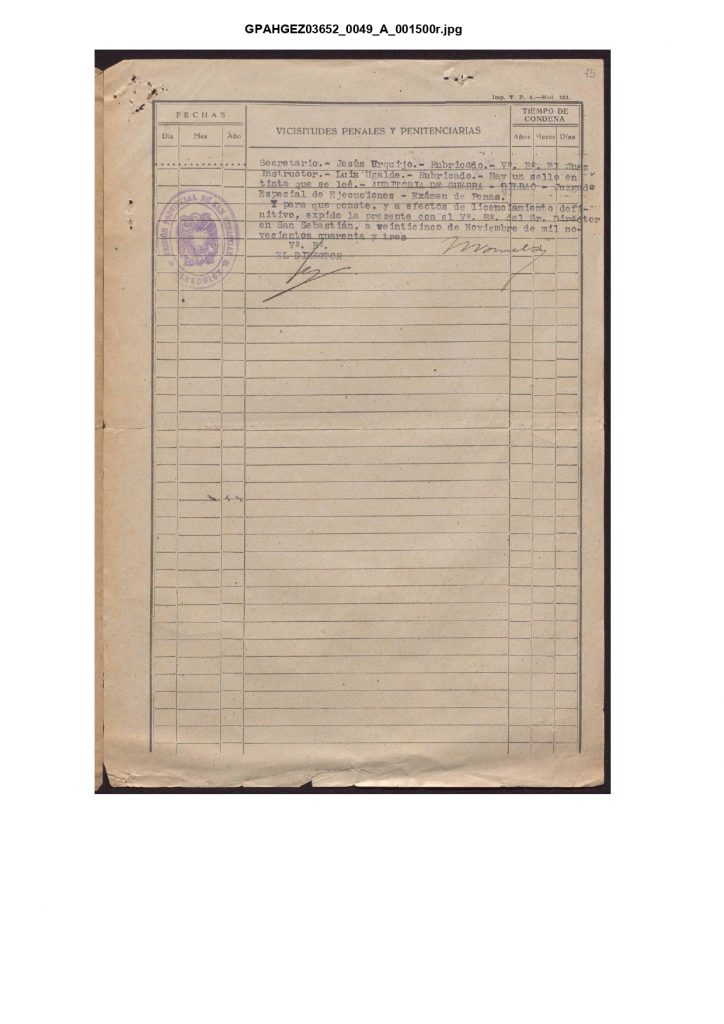 GPAHGEZ03652_0049_A_001500r.jpg
15
Imp. T. P. A.—Mod. 121.
FECHAS
VICISITUDES PENALES Y PENITENCIARIAS
TIEMPO DE
CONDENA
Día Mes Año
Años Meses Días
Secretario.- Jesús Urquijo.- Rubricado.- Vº. Bº. El Juez
Instructor.- Luis Ugalde.- Rubricado.- Hay un sello en
tinta que se leé.- AUDITORIA DE GUERRA - BILBAO - Juzgado
Especial de Ejecuciones - Exámen de Penas.
Y para que conste, y a efectos de licenciamiento defi-
nitivo, expido la presente con el Vº. Bº. del Sr. Director
en San Sebastián, a veinticinco de Noviembre de mil no-
vecientos cuarenta y tres
Vº. Bº.
EL DIRECTOR
PRISIÓN PROVINCIAL DE SAN SEBASTIAN